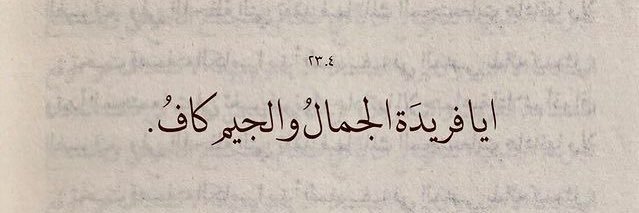 ٢٣.٤
ايا فريدَة الجمالُ والجيم كافُ.